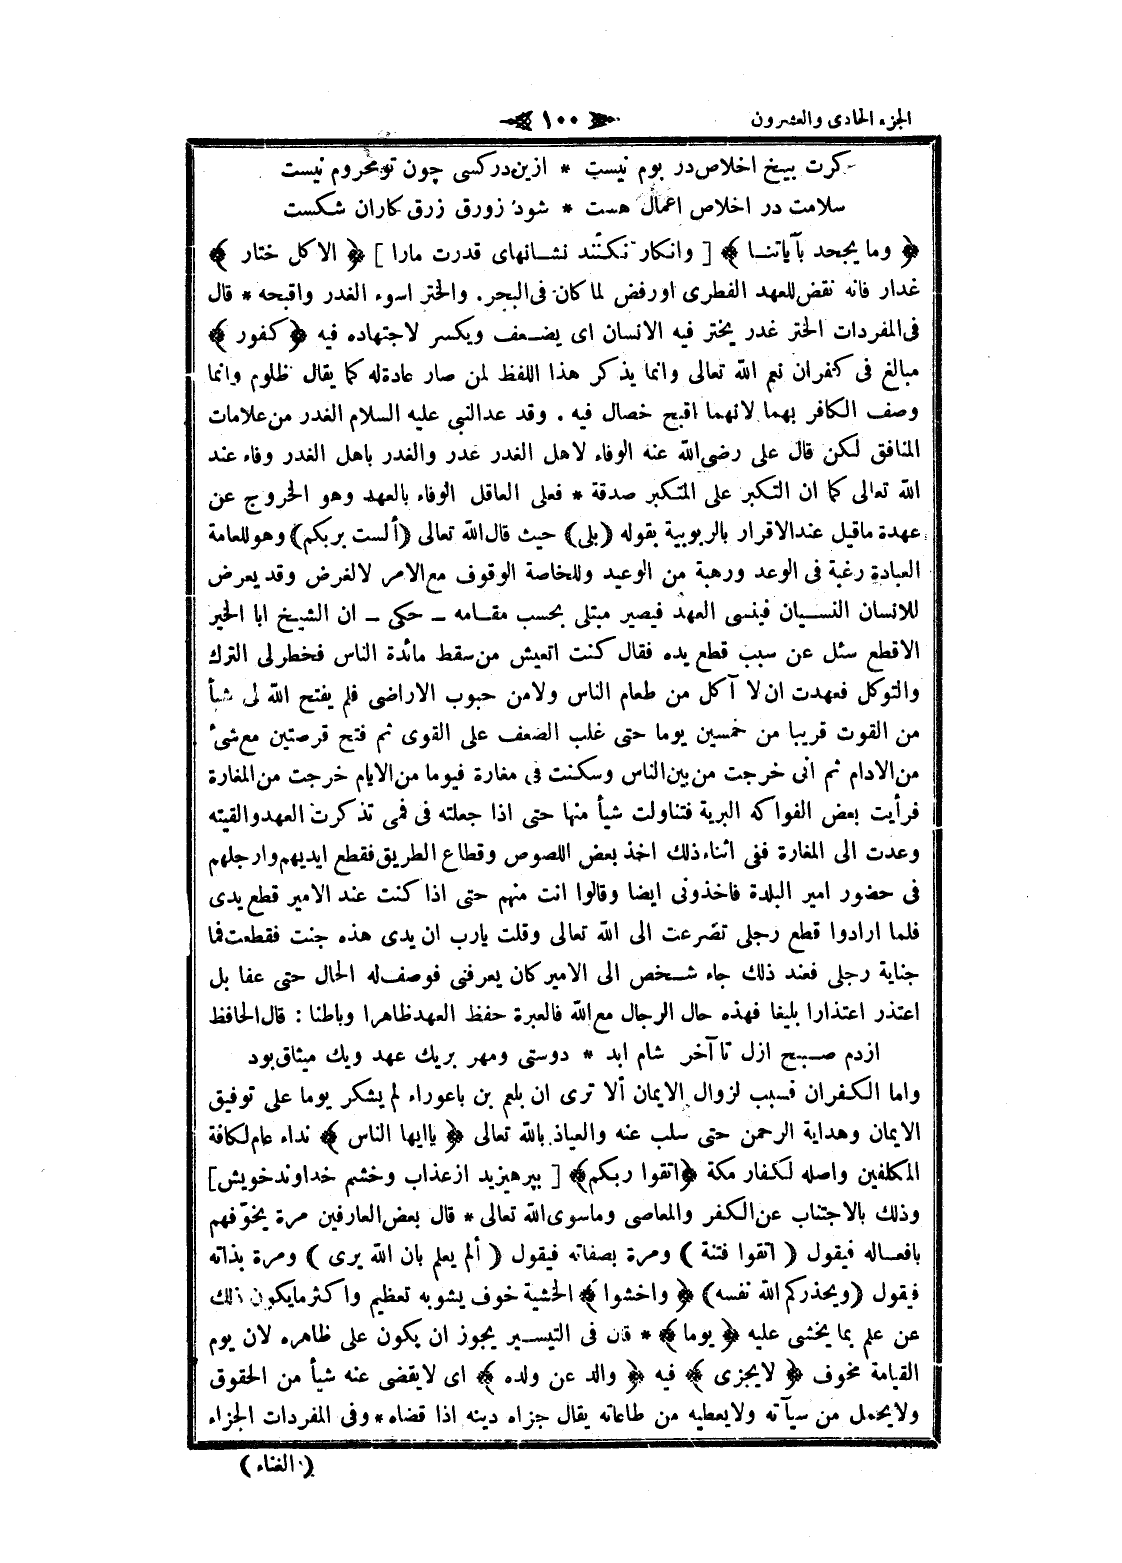 الجزء الحادى والعشرون ١٠٠
كرت بيخ اخلاص در بوم نيست * ازين در كسى چون تو محروم نيست
سلامت در اخلاص اعمال هست * شود زورق زرق كاران شكست
﴿ وما يجحد بآياتنا ﴾ [ وانكار نكنند نشانهاى قدرت مارا ] ﴿ الا كل ختار ﴾
غدار فانه نقض للعهد الفطرى اورفض لما كان فى البحر. والختر اسوء الغدر واقبحه * قال
فى المفردات الختر غدر يختر فيه الانسان اى يضعف ويكسر لاجتهاده فيه ﴿ كفور ﴾
مبالغ فى كفران نعم الله تعالى وانما يذكر هذا اللفظ لمن صار عادة له كما يقال ظلوم وانما
وصف الكافر بهما لانهما اقبح خصال فيه . وقد عد النبى عليه السلام الغدر من علامات
المنافق لكن قال على رضى الله عنه الوفاء لاهل الغدر غدر والغدر باهل الغدر وفاء عند
الله تعالى كما ان التكبر على المتكبر صدقة * فعلى العاقل الوفاء بالعهد وهو الخروج عن
عهدة ماقيل عند الاقرار بالربوبية بقوله (بلى) حيث قال الله تعالى (ألست بربكم) وهو للعامة
العبادة رغبة فى الوعد ورهبة من الوعيد وللخاصة الوقوف مع الامر لا لغرض وقد يعرض
للانسان النسيان فينسى العهد فيصير مبتلى بحسب مقامه ـ حكى ـ ان الشيخ ابا الخير
الاقطع سئل عن سبب قطع يده فقال كنت اتعيش من سقط مائدة الناس فخطر لى الترك
والتوكل فعهدت ان لا آكل من طعام الناس ولا من حبوب الاراضى فلم يفتح الله لى شيأ
من القوت قريبا من خمسين يوما حتى غلب الضعف على القوى ثم فتح قرصتين مع شئ
من الادام ثم انى خرجت من بين الناس وسكنت فى مغارة فيوما من الايام خرجت من المغارة
فرأيت بعض الفواكه البرية فتناولت شيأ منها حتى اذا جعلته فى فمى تذكرت العهد والقيته
وعدت الى المغارة ففى اثناء ذلك اخذ بعض اللصوص وقطاع الطريق فقطع ايديهم وارجلهم
فى حضور امير البلدة فاخذونى ايضا وقالوا انت منهم حتى اذا كنت عند الامير قطع يدى
فلما ارادوا قطع رجلى تضرعت الى الله تعالى وقلت يارب ان يدى هذه جنت فقطعت فما
جناية رجلى فعند ذلك جاء شخص الى الامير كان يعرفنى فوصف له الحال حتى عفا بل
اعتذر اعتذارا بليغا فهذه حال الرجال مع الله فالعبرة حفظ العهد ظاهرا وباطنا : قال الحافظ
ازدم صبح ازل تا آخر شام ابد * دوستى ومهر بريك عهد ويك ميثاق بود
واما الكفران فسبب لزوال الايمان ألا ترى ان بلعم بن باعوراء لم يشكر يوما على توفيق
الايمان وهداية الرحمن حتى سلب عنه والعياذ بالله تعالى ﴿ ياايها الناس ﴾ نداء عام لكافة
المكلفين واصله لكفار مكة ﴿ اتقوا ربكم ﴾ [ بپرهيزيد ازعذاب وخشم خداوند خويش ]
وذلك بالاجتناب عن الكفر والمعاصى وماسوى الله تعالى * قال بعض العارفين مرة يخوّفهم
بافعاله فيقول ( اتقوا فتنة ) ومرة بصفاته فيقول ( ألم يعلم بان الله يرى ) ومرة بذاته
فيقول (ويحذركم الله نفسه) ﴿ واخشوا ﴾ الخشية خوف يشوبه تعظيم واكثر مايكون ذلك
عن علم بما يخشى عليه ﴿ يوما ﴾ * قال فى التيسير يجوز ان يكون على ظاهره لان يوم
القيامة مخوف ﴿ لايجزى ﴾ فيه ﴿ والد عن ولده ﴾ اى لايقضى عنه شيأ من الحقوق
ولايحمل من سيآته ولايعطيه من طاعاته يقال جزاه دينه اذا قضاه * وفى المفردات الجزاء
( الغناء )